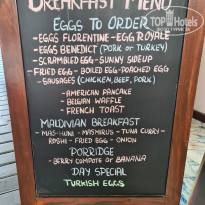 TOP HOTELS
BREAKFAST MENU
EGGS TO ORDER
- EGGS FLORENTINE - EGG ROYALE
- EGGS BENEDICT (PORK or TURKEY)
- SCRAMBLED EGG - SUNNY SIDEUP
- FRIED EGG - BOILED EGG - POACHED EGG
- SAUSAGES (CHICKEN, BEEF, PORK)
- AMERICAN PANCAKE
- BELGIAN WAFFLE
- FRENCH TOAST
MALDIVIAN BREAKFAST
- MAS-HUNI - MASMIRUS - TUNA CURRY
- ROSHI - FRIED EGG - ONION
PORRIDGE
- BERRY COMPOTE or BANANA
DAY SPECIAL
TURKISH EGGS